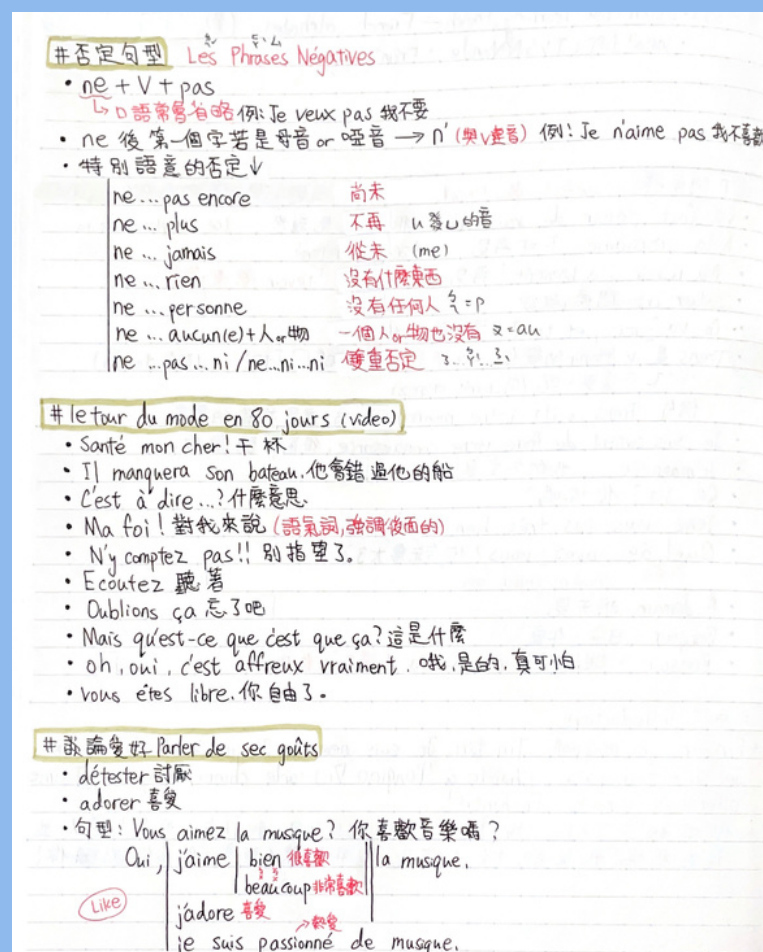 #否定句型 Les Phrases Négatives
ㄜ ㄙ
• ne + V + pas
↳口語常會省略 例: Je veux pas 我不要
• ne 後第一個字若是母音 or 啞音 → n' (與V連音) 例: Je n'aime pas 我不喜歡
• 特別語意的否定↓
ne ... pas encore 尚未
ne ... plus 不再 u 發ㄩ的音
ne ... jamais 從未 (me)
ne ... rien 沒有什麼東西
ne ... personne 沒有任何人
ne ... aucun(e)+人or物 一個人or物也沒有 ㄡ=au
ne ...pas...ni /ne...ni...ni 雙重否定
# le tour du mode en 80 jours (video)
• Santé mon cher! 干杯
• Il manquera son bateau. 他會錯過他的船
• C'est à dire...? 什麼意思.
• Ma foi! 對我來說 (語氣詞,強調後面的)
• N'y comptez pas!! 別指望了。
• Ecoutez 聽著
• Oublions ça 忘了吧
• Mais qu'est-ce que c'est que ça? 這是什麼
• oh, oui, c'est affreux vraiment. 哦,是的,真可怕
• vous êtes libre. 你自由了。
# 談論愛好 Parler de sec goûts
• détester 討厭
• adorer 喜愛
• 句型: Vous aimez la musque? 你喜歡音樂嗎?
Oui, j'aime bien 很喜歡 la musique.
beaucoup 非常喜歡
Like
j'adore 喜愛
→熱愛
je suis passionné de musque.